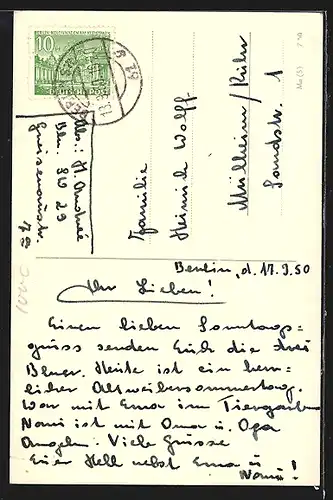 10
DEUTSCHE POST
BERLIN
Abs.: H. Andreé
Bln. SW 29
Gneisenaustr.
Familie
Heinrich Wolff
Mülheim/Ruhr
Sandstr. 1
Berlin, d. 17.9.50
Ihr Lieben!
Einen lieben Sonntags=
gruss senden Euch die drei
Blner. Heute ist ein herr=
licher Altweibersommertag.
War mit Erna im Tiergarten
Nani ist mit Oma u. Opa
Angeln. Viele Grüsse
Euer Hell nebst Erna u
Nani!